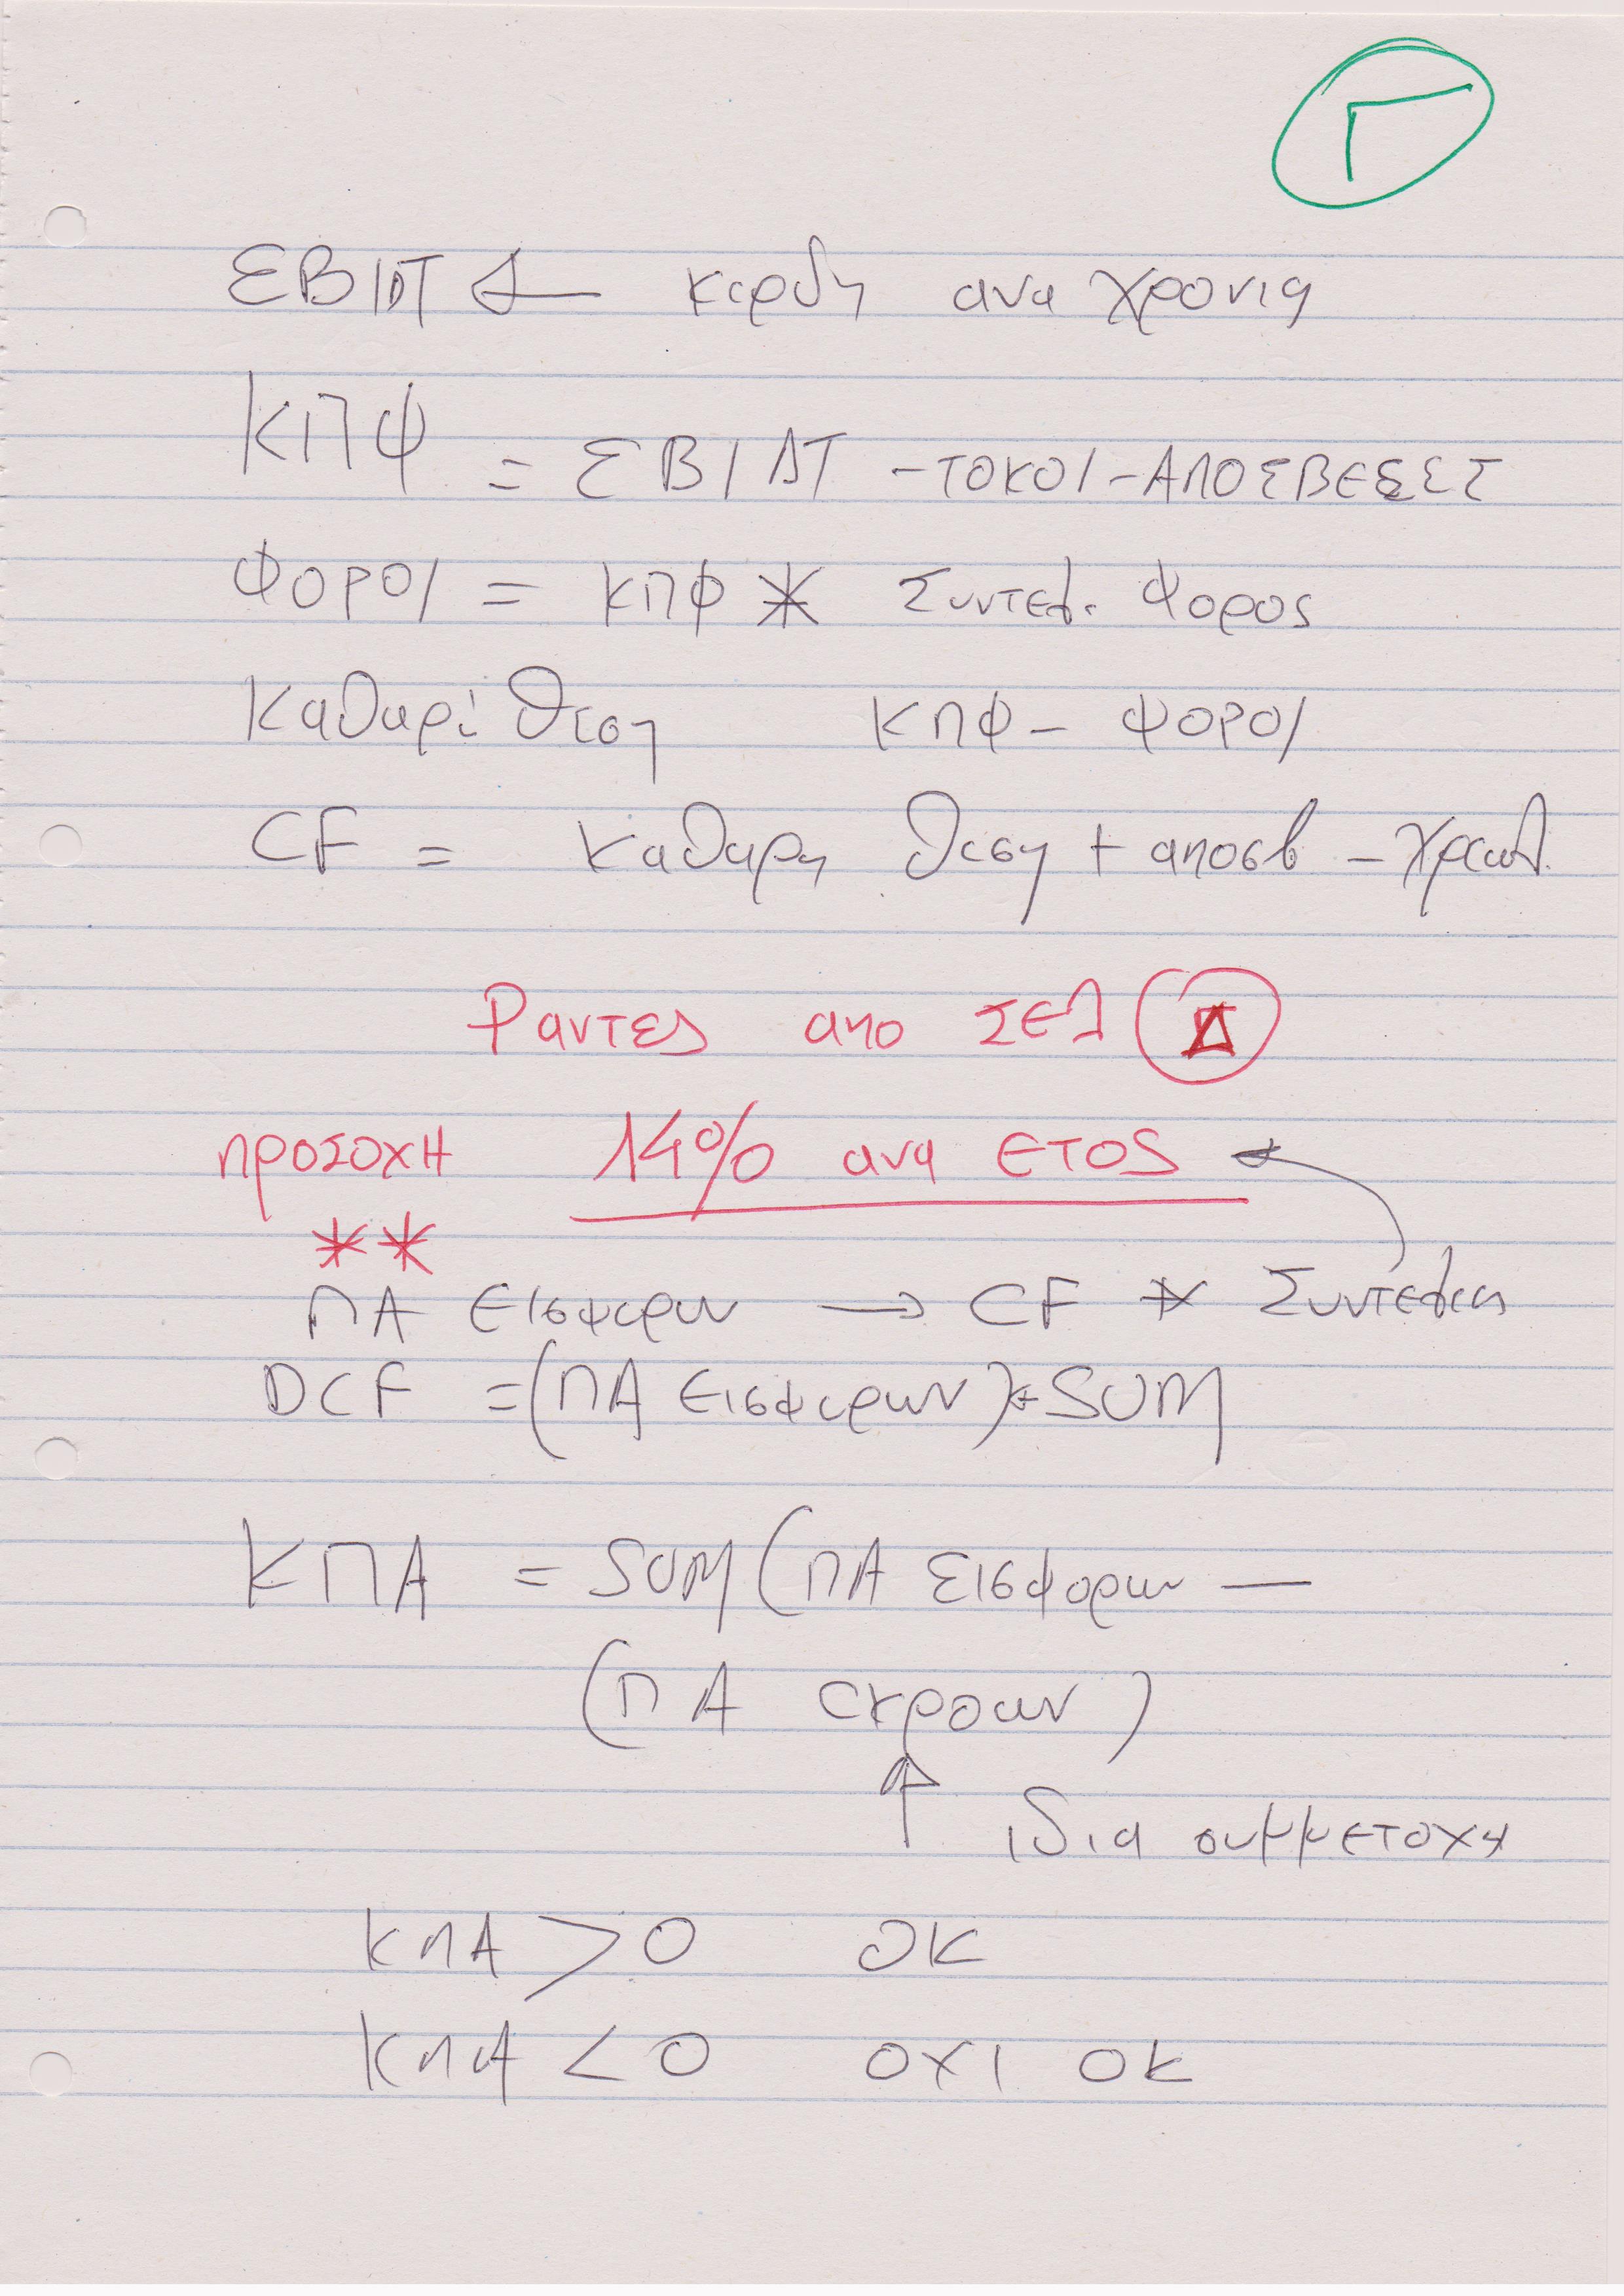 Γ
ΕΒΙDΤ ← κερδη ανα χρονια
ΚΠΦ = ΕΒΙΔΤ - ΤΟΚΟΙ - ΑΠΟΣΒΕΣΕΣ
ΦΟΡΟΙ = ΚΠΦ * Συντελ. Φορος
Καθαρί θεση ΚΠΦ - ΦΟΡΟΙ
CF = Καθαρη θεση + αποσβ - χρεωλ.
Ραντες απο ΣΕΛ Δ
ΠΡΟΣΟΧΗ 14% ανα ΕΤΟΣ ←
**
ΠΑ Εισφερων → CF * Συντελεση
DCF = (ΠΑ Εισφερων) * SUM
ΚΠΑ = SUM (ΠΑ Εισφορων —
(ΠΑ εκροων)
↑ ιδια συμμετοχη
ΚΠΑ > 0 ΟΚ
ΚΠΑ < 0 ΟΧΙ ΟΚ